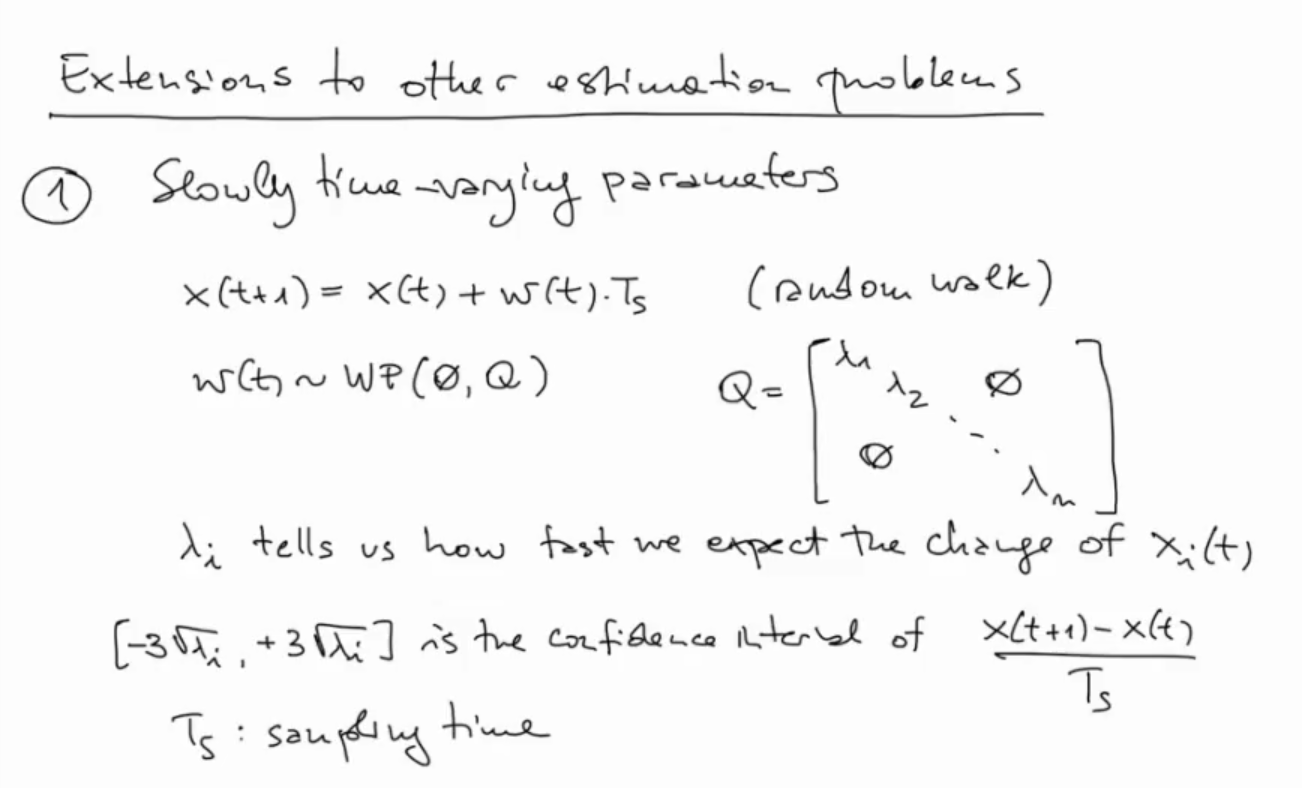 Extensions to other estimation problems
① Slowly time-varying parameters
x(t+1) = x(t) + w(t)·Ts (random walk)
w(t) ~ WP(∅, Q) Q = [λ1 λ2 ∅ ∅ ⋱ λn]
λi tells us how fast we expect the change of xi(t)
[-3√λi, +3√λi] is the confidence interval of (x(t+1) - x(t))/Ts
Ts : sampling time